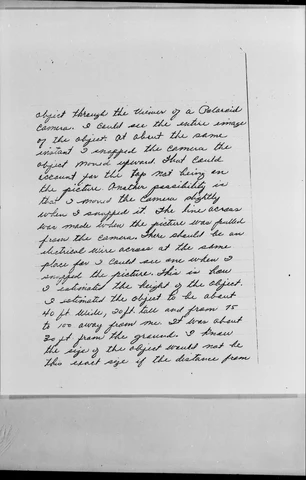 object through the viewer of a Polaroid
camera. I could see the entire image
of the object. At about the same
instant I snapped the camera the
object moved upward. That could
account for the top not being in
the picture. Another possibility is
that I moved the camera slightly
when I snapped it. The line across
was made when the picture was pulled
from the camera. There should be an
electrical wire across at the same
place for I could see one when I
snapped the picture. This is how
I estimated the height of the object.
I estimated the object to be about
40 ft wide, 20 ft tall and from 75
to 100 away from me. It was about
20 ft from the ground. I know
the size of the object would not be
this exact size if the distance from